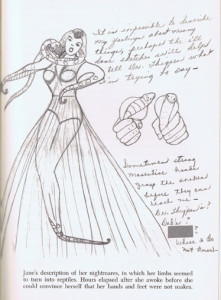 It is impossible to describe
my feelings about many
things, perhaps the ill
done sketches will help
tell Dr. Thigpen what
I'm trying to say—
Sometimes strong
masculine hands
grasp the snakes
before they can
reach me —
Dr. Thigpen's?
?
Where is the
Jane's description of her nightmares, in which her limbs seemed
to turn into reptiles. Hours elapsed after she awoke before she
could convince herself that her hands and feet were not snakes.